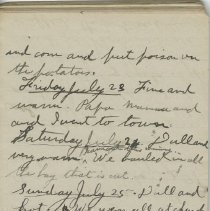 and corn and put poison on
the potatoes.
Friday July 23 Fine and
warm. Papa mamma and
and I went to town.
Saturday July 24 Dull and
very warm. We hauled in all
the hay that is cut.
Sunday July 25 - Dull and
hot. We were all at